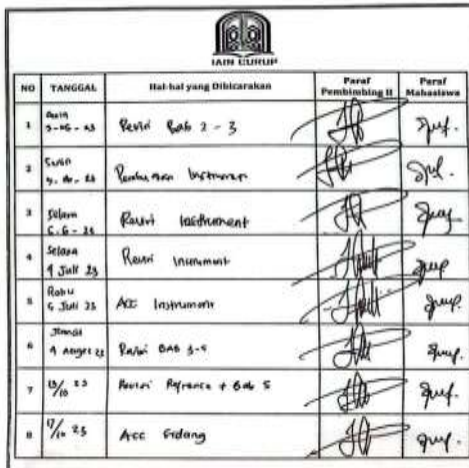 IAIN CURUP
NO TANGGAL Hal-hal yang Dibicarakan Paraf Pembimbing II Paraf Mahasiswa
1 Revisi Bab 2 - 3
2 Senin Pembuatan Instrumen
3 Selasa 6 - 6 - 23 Revisi Instrument
4 Selasa 4 Juli 23 Revisi Instrument
5 Rabu 5 Juli 23 ACC Instrument
6 Jumat 4 Revisi BAB 3-5
7 /10 23 Revisi Refrence + Bab 5
8 17/10 23 Acc Sidang